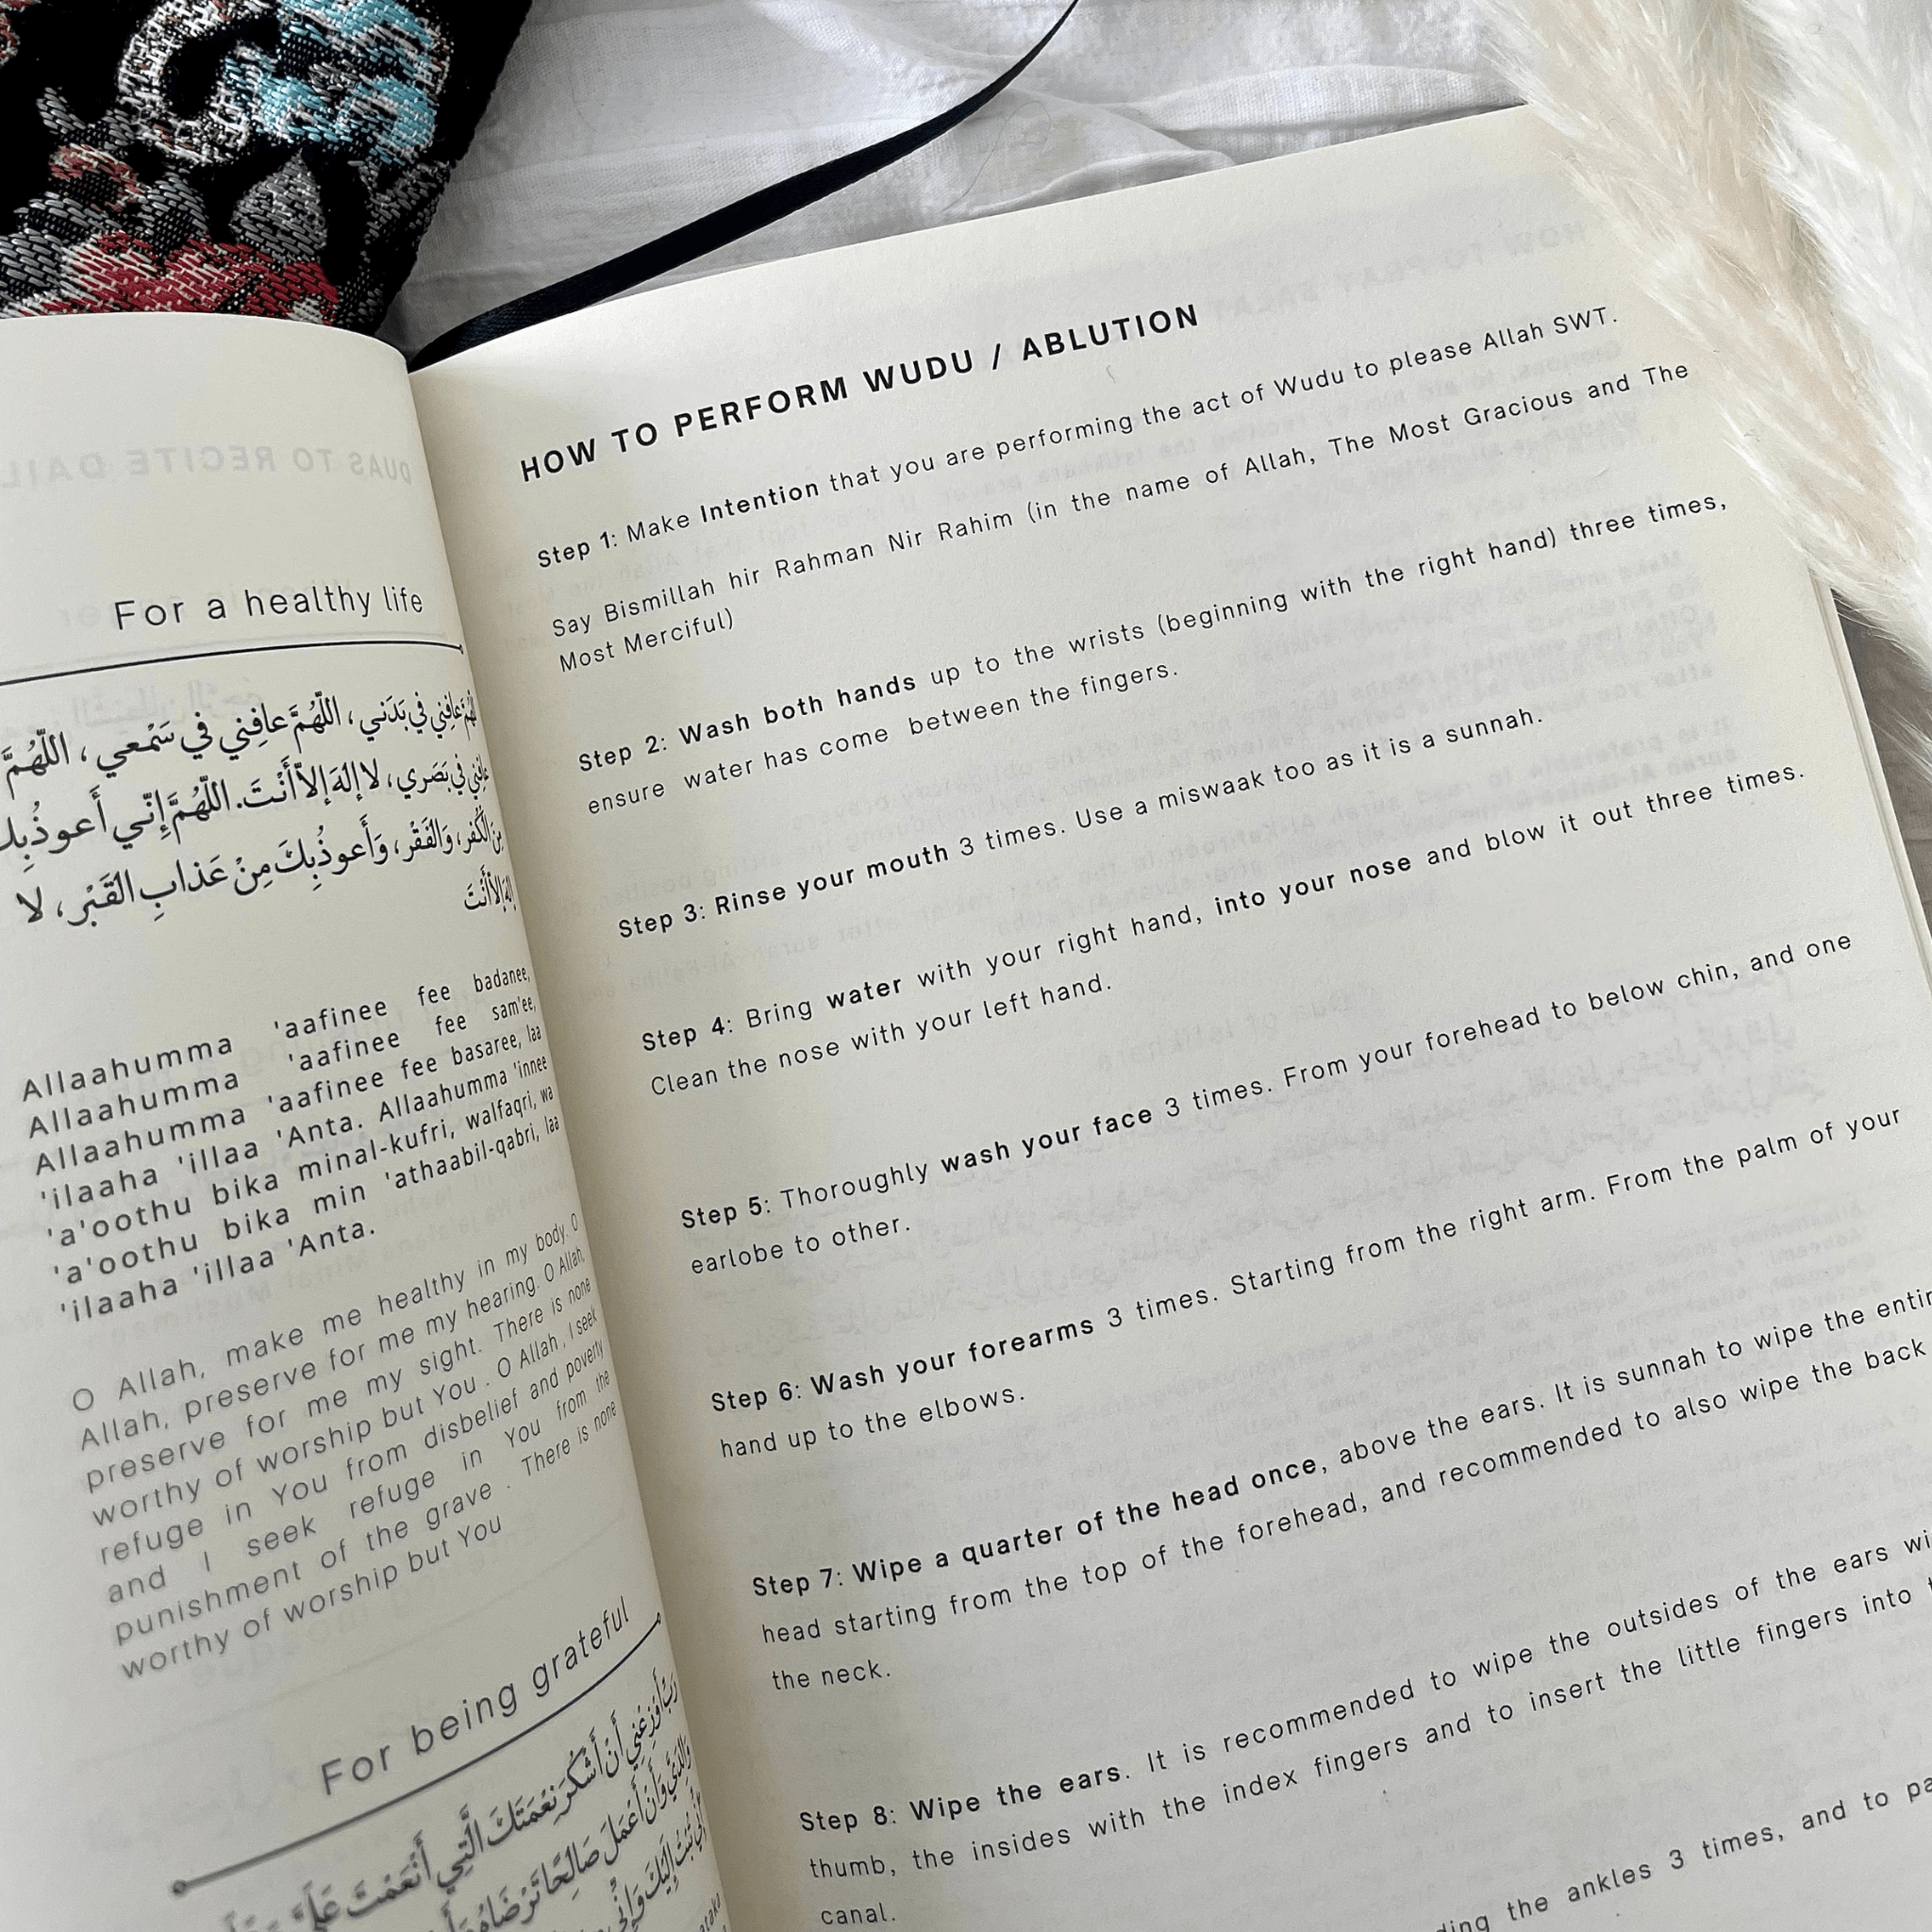 For a healthy life
اللّهُمَّ عافِني في بَدَني، اللّهُمَّ عافِني في سَمْعي، اللّهُمَّ
عافِني في بَصَري، لا إلهَ إلاّ أَنْتَ. اللّهُمَّ إِنّي أَعوذُ بِكَ
مِنَ الْكُفر، وَالفَقْر، وَأَعوذُ بِكَ مِنْ عَذابِ القَبْر، لا
إلهَ إلاّ أَنْتَ
Allaahumma 'aafinee fee badanee,
Allaahumma 'aafinee fee sam'ee,
Allaahumma 'aafinee fee basaree, laa
'ilaaha 'illaa 'Anta. Allaahumma 'innee
'a'oothu bika minal-kufri, walfaqri, wa
'a'oothu bika min 'athaabil-qabri, laa
'ilaaha 'illaa 'Anta.
O Allah, make me healthy in my body. O
Allah, preserve for me my hearing. O Allah,
preserve for me my sight. There is none
worthy of worship but You . O Allah , I seek
refuge in You from disbelief and poverty
and I seek refuge in You from the
punishment of the grave . There is none
worthy of worship but You
For being grateful
رَبِّ أَوْزِعْنِي أَنْ أَشْكُرَ نِعْمَتَكَ الَّتِي أَنْعَمْتَ عَلَيَّ
وَالِدَيَّ وَأَنْ أَعْمَلَ صَالِحًا تَرْضَاهُ
إِنِّي تُبْتُ إِلَيْكَ وَإِنِّي
HOW TO PERFORM WUDU / ABLUTION
Step 1: Make Intention that you are performing the act of Wudu to please Allah SWT.
Say Bismillah hir Rahman Nir Rahim (in the name of Allah, The Most Gracious and The
Most Merciful)
Step 2: Wash both hands up to the wrists (beginning with the right hand) three times,
ensure water has come between the fingers.
Step 3: Rinse your mouth 3 times. Use a miswaak too as it is a sunnah.
Step 4: Bring water with your right hand, into your nose and blow it out three times.
Clean the nose with your left hand.
Step 5: Thoroughly wash your face 3 times. From your forehead to below chin, and one
earlobe to other.
Step 6: Wash your forearms 3 times. Starting from the right arm. From the palm of your
hand up to the elbows.
Step 7: Wipe a quarter of the head once, above the ears. It is sunnah to wipe the entir
head starting from the top of the forehead, and recommended to also wipe the back
the neck.
Step 8: Wipe the ears. It is recommended to wipe the outsides of the ears wi
thumb, the insides with the index fingers and to insert the little fingers into
canal.
ding the ankles 3 times, and to pa